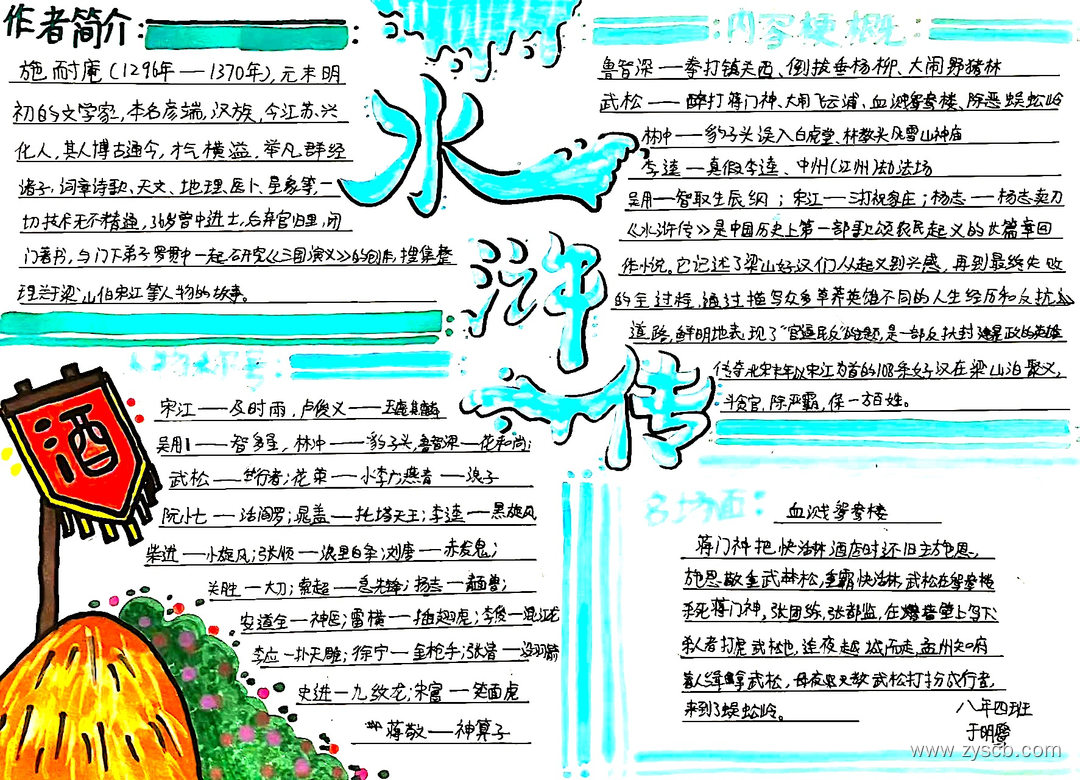 作者简介:
施耐庵(1296年——1370年),元末明
初的文学家,本名彦端,汉族,今江苏兴
化人,其人博古通今,才气横溢,举凡群经
诸子,词章诗歌、天文、地理、医卜、星象等,一
切技术无不精通,36岁曾中进士,后弃官归里,闭
门著书,与门下弟子罗贯中一起研究《三国演义》的创作,搜集整
理关于梁山伯宋江等人物的故事。
水浒传
内容梗概:
鲁智深——拳打镇关西、倒拔垂杨柳、大闹野猪林
武松——醉打蒋门神、大闹飞云浦、血溅鸳鸯楼、除恶蜈蚣岭
林冲——豹子头误入白虎堂、林教头风雪山神庙
李逵——真假李逵、中州(江州)劫法场
吴用——智取生辰纲;宋江——三打祝家庄;杨志——杨志卖刀
《水浒传》是中国历史上第一部歌颂农民起义的长篇章回
作小说。它记述了梁山好汉们从起义到兴盛,再到最终失败
的全过程,通过描写众多草莽英雄不同的人生经历和反抗
道路,鲜明地表现了"官逼民反"的主题,是一部反抗封建暴政的英雄
传奇,北宋末年以宋江为首的108条好汉在梁山泊聚义,
斗贪官,除严霸,保一方百姓。
人物木卓号:
宋江——及时雨,卢俊义——玉麒麟
吴用——智多星,林冲——豹子头,鲁智深—花和尚;
武松——行者;花荣——小李广,燕青——浪子
阮小七——活阎罗;晁盖——托塔天王;李逵——黑旋风
柴进——小旋风;张顺——浪里白条;刘唐——赤发鬼;
关胜—大刀;索超——急先锋;杨志——青面兽;
安道全—神医;雷横——插翅虎;李俊—混江龙
李应—扑天雕;徐宁—金枪手;张清—没羽箭
史进—九纹龙;朱富—笑面虎
蒋敬—神算子
名场面: 血溅鸳鸯楼
蒋门神把快活林酒店时还旧主施恩,
施恩敬重武松,重霸快活林,武松在鸳鸯楼
杀死蒋门神,张团练,张都监,在墙壁上写下
杀人者打虎武松也,连夜越城而走,孟州知府
命人缉拿武松,母夜叉教武松打扮成行者,
来到了蜈蚣岭。
八年四班
www.zyscb.com